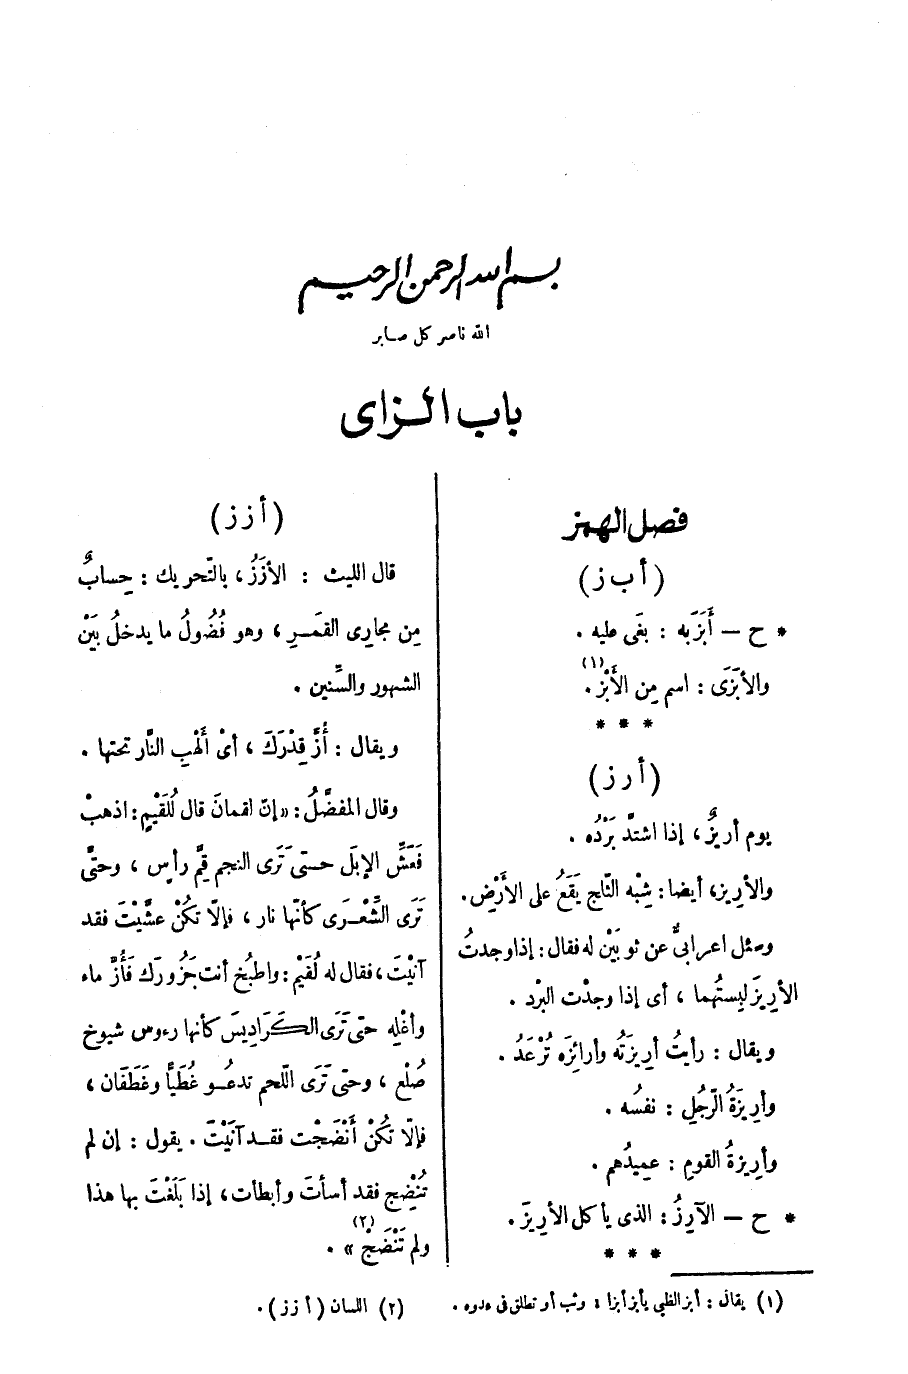 بسم الله الرحمن الرحيم
الله ناصر كل صابر
باب الزاى
فصل الهمز
(أ ب ز)
* ح – أَبَزَ به : بغَى عليه .
والأَبَزَى : اسم مِن الأَبْز(١) .
* * *
(أ ر ز)
يوم أريزٌ ، إذا اشتدَّ بَرْدُه .
والأريز، أيضا: شِبْه الثّلج يَقَعُ على الأَرْضِ.
وسئل اعرابىٌّ عن ثوبَيْن له فقال : إذا وجدتُ
الأريزَ لبِستُهما ، أى إذا وجدْت البرْد .
ويقال : رأيتُ أريزَتَه وأرائزَه تُرْعَدُ .
وأريزَةُ الرّجُلِ : نفسُه .
وأريزةُ القومِ : عميدُهم .
* ح – الآرِزُ : الذى يأكل الأريزَ .
* * *
(أ ز ز)
قال الليث : الأزَزُ ، بالتّحريك : حِسابٌ
مِن مجارِى القمَـرِ ، وهو فُضُولُ ما يدخلُ بَيْن
الشهور والسِّنين .
ويقال : أُزَّ قِدْرَكَ ، أىْ أَلْهِبِ النَّار تحتها .
وقال المفضَّلُ : «إنّ لقمانَ قال لِلُقَيْمٍ : اذهبْ
فَعَشِّ الإبلَ حـتى تَرَى النجم قِمَّ رأسٍ ، وحتَّى
تَرَى الشِّعْـرَى كأنّها نار ، فإلّا تكُنْ عشَّيْتَ فقد
آنَيْتَ ، فقال له لُقَيْم : واطبُخ أنت جَزُورَك فَأُزَّ ماء
وأَغْلِه حتّى تَرَى الكَرَادِيسَ كأنها رءوس شيوخ
صُلْع ، وحتى تَرَى اللّحم تدعُـو غُطَيًّا وغَطَفَان ،
فإلّا تكُنْ أَنْضَجْت فقـد آنَيْتَ . يقول : إن لم
تُنْضِج فقد أسأتَ وأبطأت ، إذا بَلَغْتَ بها هذا
ولم تَنْضَجْ(٢) » .
(١) يقال : أبز الظبى يأبز أبزا : وثب أو تطلق فى عدوه .
(٢) اللسان (أ ز ز) .